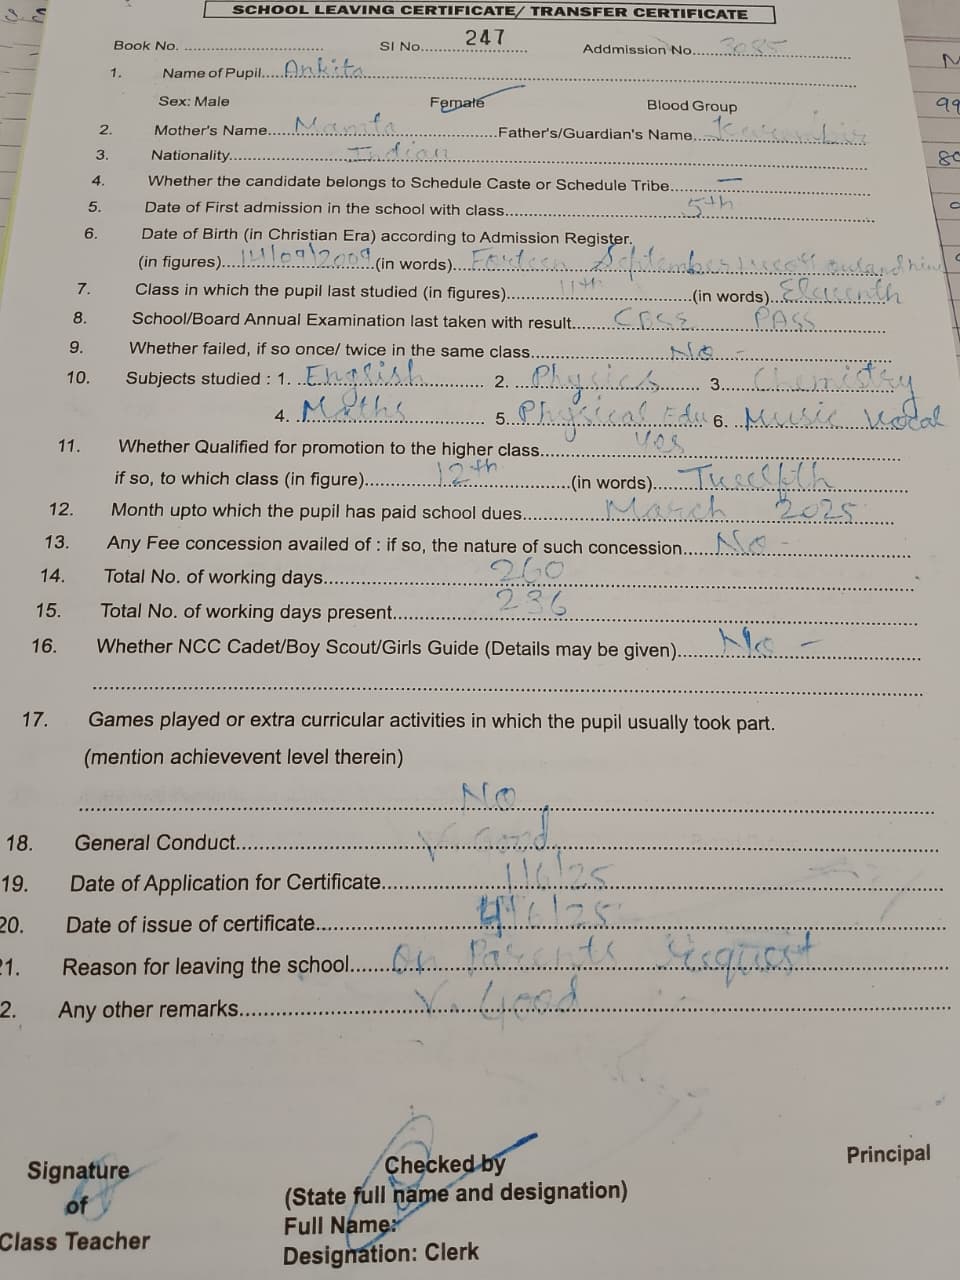 SCHOOL LEAVING CERTIFICATE/ TRANSFER CERTIFICATE
Book No. ........ SI No. 247 Addmission No. 3085
1. Name of Pupil.... Ankita
Sex: Male Female Blood Group
2. Mother's Name.... Mamta Father's/Guardian's Name.... Karambir
3. Nationality.... Indian
4. Whether the candidate belongs to Schedule Caste or Schedule Tribe.... —
5. Date of First admission in the school with class.... 5th
6. Date of Birth (in Christian Era) according to Admission Register.
(in figures).... 14/09/2009 (in words).... September
7. Class in which the pupil last studied (in figures).... 11th (in words).... Eleventh
8. School/Board Annual Examination last taken with result.... CBSE PASS
9. Whether failed, if so once/ twice in the same class.... No -
10. Subjects studied : 1. English 2. Physics 3. Chemistry
4. Maths 5. Physical Edu 6. Music Vocal
11. Whether Qualified for promotion to the higher class.... Yes
if so, to which class (in figure).... 12th (in words).... Twelfth
12. Month upto which the pupil has paid school dues.... March 2025
13. Any Fee concession availed of : if so, the nature of such concession.... No -
14. Total No. of working days.... 260
15. Total No. of working days present.... 236
16. Whether NCC Cadet/Boy Scout/Girls Guide (Details may be given).... No -
17. Games played or extra curricular activities in which the pupil usually took part.
(mention achievevent level therein)
No
18. General Conduct.... V. Good
19. Date of Application for Certificate.... 1/6/25
20. Date of issue of certificate.... 4/6/25
21. Reason for leaving the school.... On Parents request
2. Any other remarks.... V. Good
Signature
of
Class Teacher
Checked by
(State full name and designation)
Full Name:
Designation: Clerk
Principal